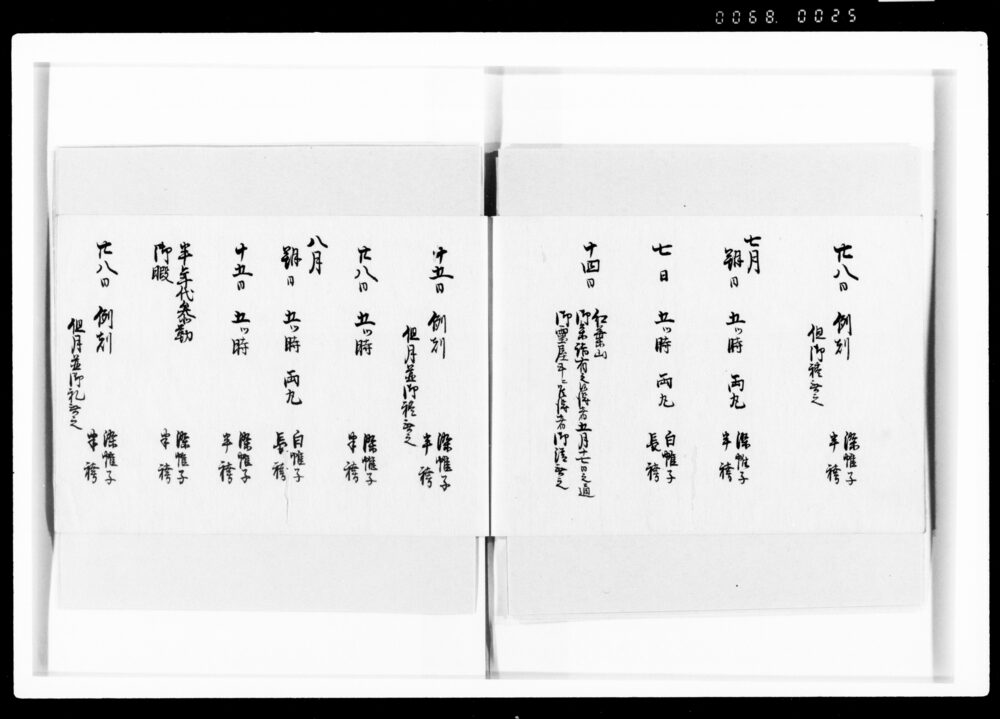 0068. 0025
廿八日 例刻
但御礼無之
染帷子
半袴
七月
朔日 五ツ時 両丸
染帷子
半袴
七日 五ツ時 両丸
白帷子
長袴
十四日
紅葉山
御参詣有之候得者五月十七日之通
御霊屋
十五日 例刻
但月並御礼無之
染帷子
半袴
廿八日 五ツ時
染帷子
半袴
八月
朔日 五ツ時 両丸
白帷子
長袴
十五日 五ツ時
染帷子
半袴
半年代参勤
御暇
染帷子
半袴
廿八日 例刻
但月並御礼無之
染帷子
半袴